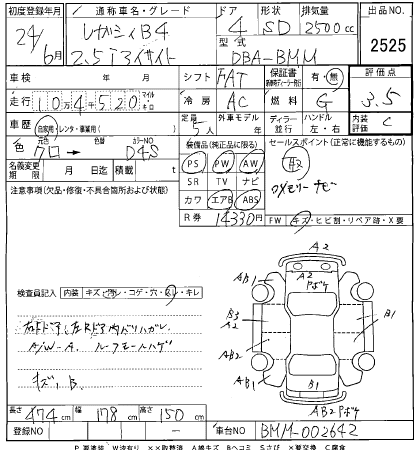 初度登録年月 通称車名・グレード ドア 形状 排気量 出品NO.
24年6月 レガシィB4 2.5iアイサイト 4 SD 2500cc 2525
型式 DBA-BMM
車検 年 月 日 シフト FAT 保証書 有・無 評価点
走行 10万4千520 マイル キロ 冷房 AC 燃料 G 3.5
車歴 自家用・レンタ・事業用( ) 定員 5人 外車モデル 年 ディーラー 並行 ハンドル 左・右 内装評価 C
色 元色 クロ → 色替 カラーNO D4S
装備品(純正品に限る) セールスポイント(正常に機能するもの)
PS PW AW
名義変更期限 月 日迄 積載 t SR TV ナビ
注意事項(欠品・修復・不具合箇所および状態) カワ エアB ABS
取
メモリーナビ
R券 14330円 FW キズ・ヒビ割・リペア跡・X要
A2
A2 Pボケ
AB1
AB1
B3
A2
B1
AB2
AB1
B1
AB2Pボケ
検査員記入 内装 キズ・コゲ・穴・スレ・キレ
右Fドア、左Rドア内バリハガレ
A/W-A ルーフモールハゲ
キズ、B
長さ 474cm 幅 178cm 高さ 150cm
登録NO 車台NO BMM-002642
P 要塗装 W波有り XX取替済 A線キズ Bヘコミ Sさび X要交換 C腐食